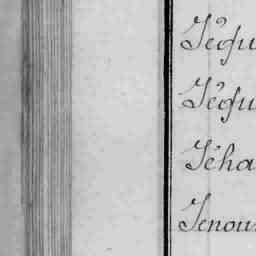 Jégu
Jégu
Jéha
Jenou